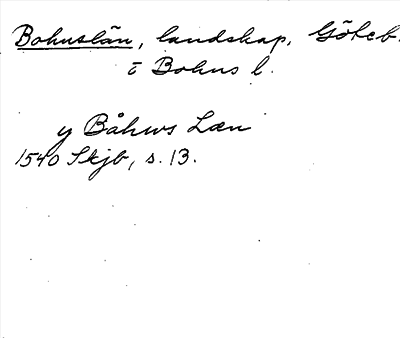 Bohuslän, landskap, Göteb.
o Bohus l.
y Båhws Læn
1540 Skjb, s. 13.